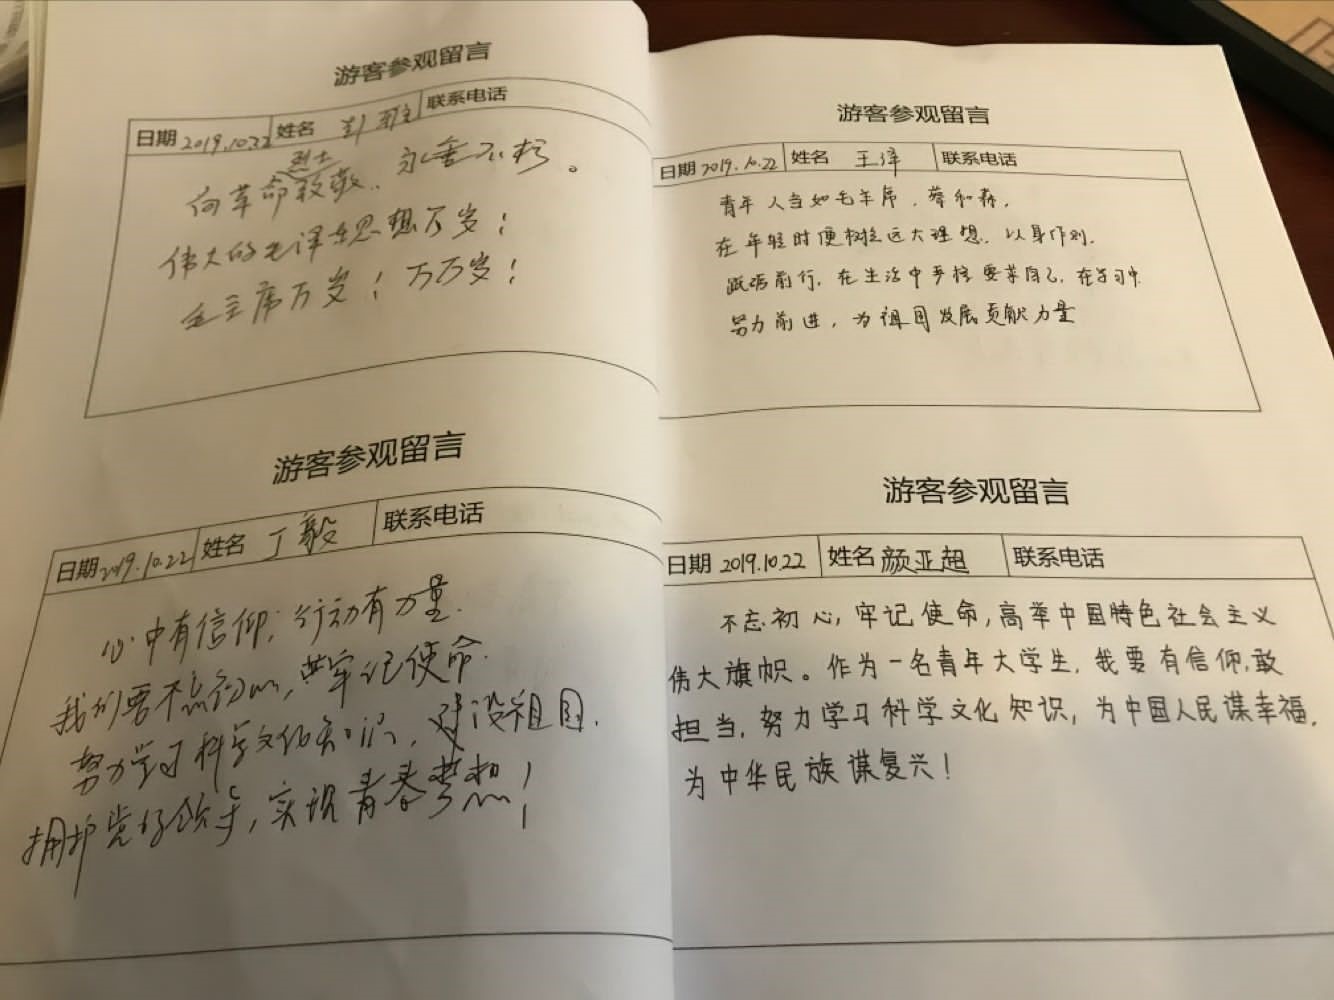 游客参观留言
日期 2019.10.22 姓名 彭 联系电话
向革命烈士致敬. 永垂不朽。
伟大的毛泽东思想万岁！
毛主席万岁！万万岁！
游客参观留言
日期 2019.10.22 姓名 丁毅 联系电话
心中有信仰, 行动有力量.
我们要不忘初心, 牢记使命.
努力学习科学文化知识, 建设祖国.
拥护党的领导, 实现青春梦想！
游客参观留言
日期 2019.10.22 姓名 王泽 联系电话
青年人当如毛主席, 蔡和森,
在年轻时便树立远大理想, 以身作则,
砥砺前行, 在生活中严格要求自己, 在学习中
努力前进, 为祖国发展贡献力量
游客参观留言
日期 2019.10.22 姓名 颜亚超 联系电话
不忘初心, 牢记使命, 高举中国特色社会主义
伟大旗帜。作为一名青年大学生, 我要有信仰, 敢
担当, 努力学习科学文化知识, 为中国人民谋幸福,
为中华民族谋复兴！